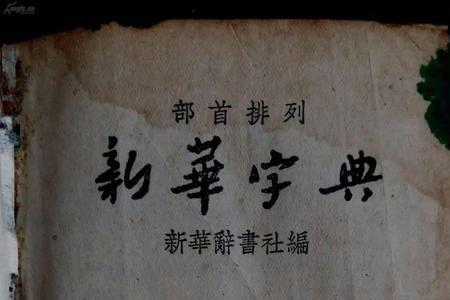 Kongfz.com
部首排列
新華字典
新華辭書社編